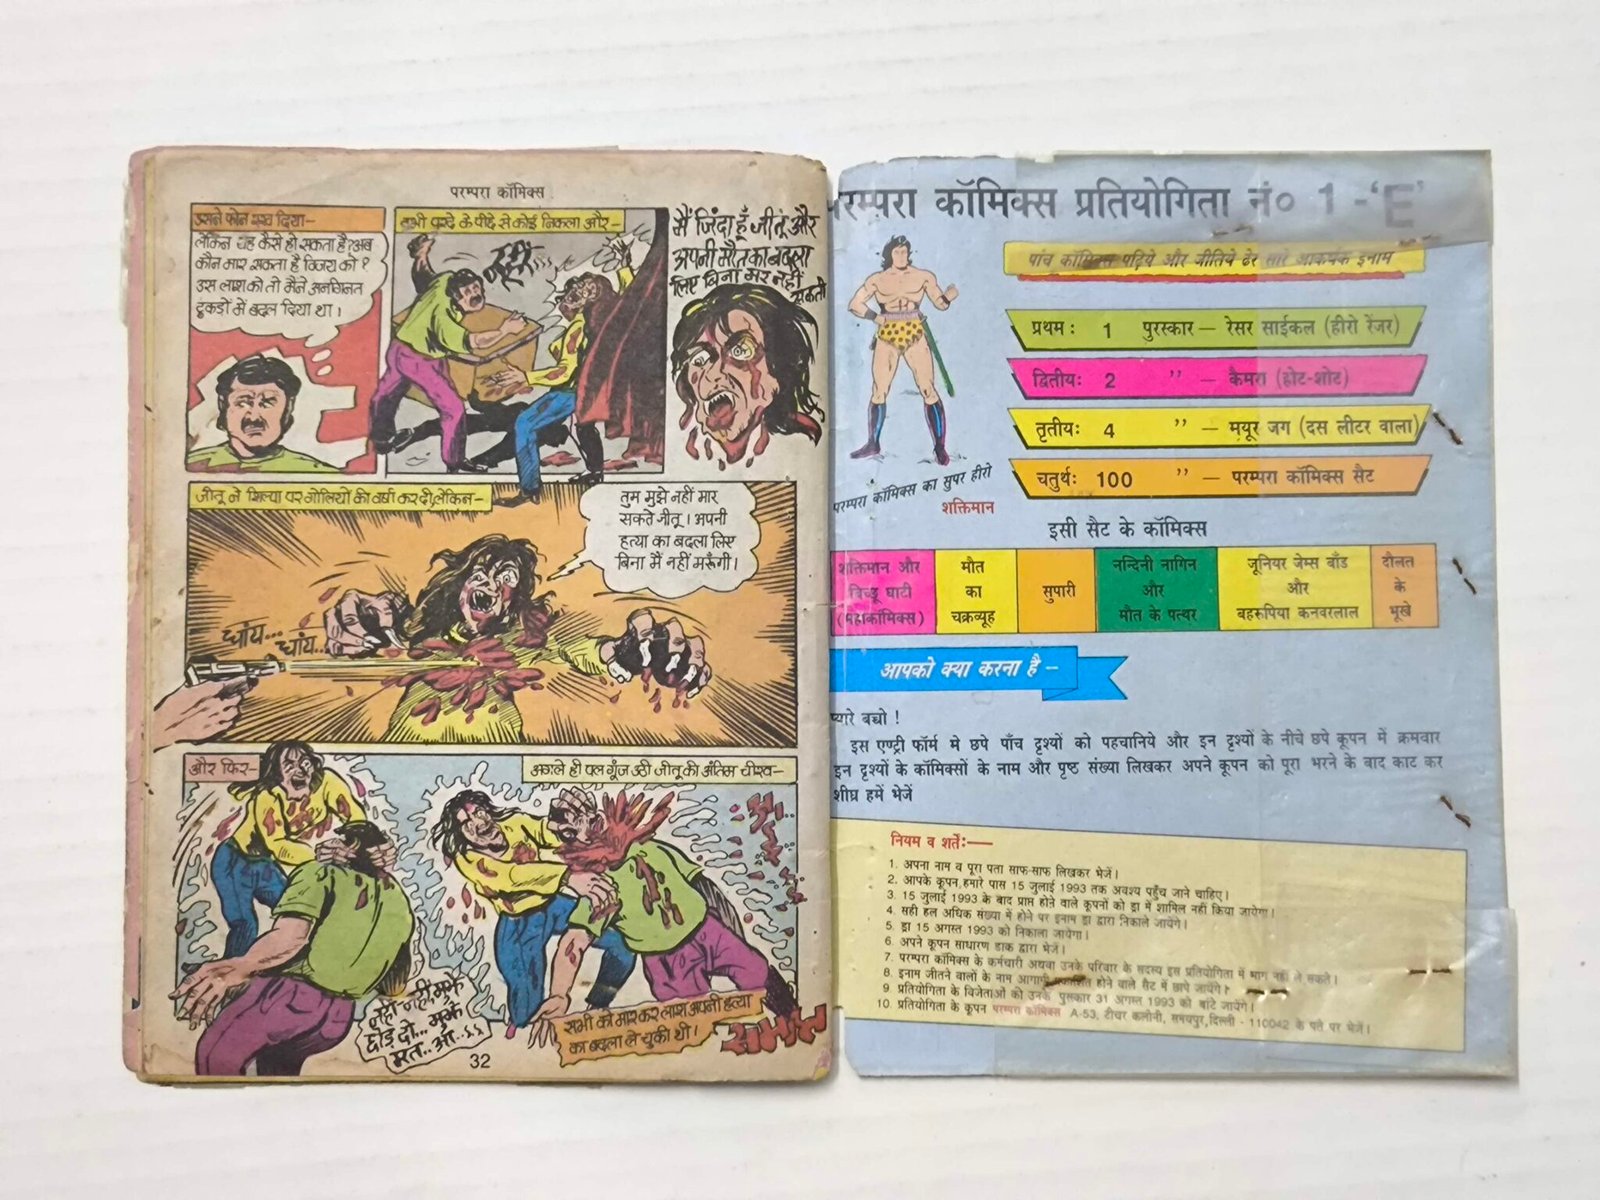 परम्परा कॉमिक्स
उसने फोन रख दिया-
लेकिन यह कैसे हो सकता है? अब
कौन मार सकता है विजय को ?
उस लाश को तो मैंने अनगिनत
टुकड़ों में बदल दिया था।
तभी परदे के पीछे से कोई निकला और-
मैं जिंदा हूँ जीतू और
अपनी मौत का बदला
लिए बिना मर नहीं
सकती
जीतू ने शिल्पा पर गोलियों की वर्षा कर दी,लेकिन-
तुम मुझे नहीं मार
सकते जीतू। अपनी
हत्या का बदला लिए
बिना मैं नहीं मरूँगी।
धांय... धांय..
और फिर-
अगले ही पल गूँज उठी जीतू की अंतिम चीख-
नहीं नहीं, मुझे
छोड़ दो... मुझे
मत.. आ..ऽऽ
सभी को मारकर लाश अपनी हत्या
का बदला ले चुकी थी।
समाप्त
32
परम्परा कॉमिक्स प्रतियोगिता नं० 1 -'E'
पांच कॉमिक्स पढ़िये और जीतिये ढेर सारे आकर्षक इनाम
प्रथम : 1 पुरस्कार – रेसर साईकल (हीरो रेंजर)
द्वितीय: 2 ” – कैमरा (होट-शोट)
तृतीय: 4 ” – मयूर जग (दस लीटर वाला)
चतुर्थ: 100 ” – परम्परा कॉमिक्स सैट
परम्परा कॉमिक्स का सुपर हीरो
शक्तिमान
इसी सैट के कॉमिक्स
शक्तिमान और
बिच्छू घाटी
(महाकॉमिक्स)
मौत
का
चक्रव्यूह
सुपारी
नन्दिनी नागिन
और
मौत के पत्थर
जूनियर जेम्स बॉंड
और
बहरूपिया कनवरलाल
दौलत
के
भूखे
आपको क्या करना है –
प्यारे बच्चो !
इस एण्ट्री फॉर्म मे छपे पाँच दृश्यों को पहचानिये और इन दृश्यों के नीचे छपे कूपन में क्रमवार
इन दृश्यों के कॉमिक्सों के नाम और पृष्ठ संख्या लिखकर अपने कूपन को पूरा भरने के बाद काट कर
शीघ्र हमें भेजें
नियम व शर्तें:—
1. अपना नाम व पूरा पता साफ-साफ लिखकर भेजें।
2. आपके कूपन,हमारे पास 15 जुलाई 1993 तक अवश्य पहुँच जाने चाहिए।
3. 15 जुलाई 1993 के बाद प्राप्त होने वाले कूपनों को ड्रा में शामिल नहीं किया जायेगा।
4. सही हल अधिक संख्या में होने पर इनाम ड्रा द्वारा निकाले जायेंगे।
5. ड्रा 15 अगस्त 1993 को निकाला जायेगा।
6. अपने कूपन साधारण डाक द्वारा भेजें।
7. परम्परा कॉमिक्स के कर्मचारी अथवा उनके परिवार के सदस्य इस प्रतियोगिता में भाग नहीं ले सकते।
8. इनाम जीतने वालों के नाम आगामी प्रकाशित होने वाले सैट में छापे जायेंगे।
9. प्रतियोगिता के विजेताओं को उनके पुरस्कार 31 अगस्त 1993 को बांटे जायेंगे।
10. प्रतियोगिता के कूपन परम्परा कॉमिक्स A-53, टीचर कलोनी, समयपुर,दिल्ली - 110042 के पते पर भेजें।